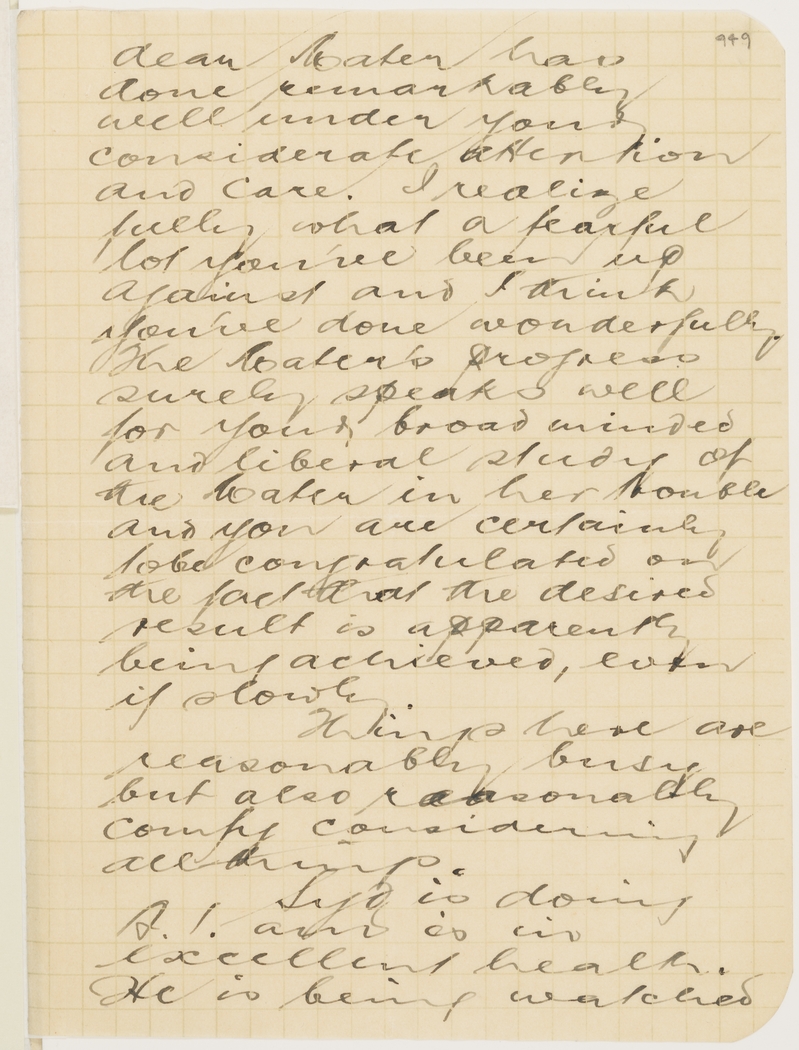 949
dear Mater has
done remarkably
well under your
considerate attention
and care. I realize
fully what a fearful
lot you've been up
against and I think
you've done wonderfully.
The Mater's progress
surely speaks well
for your broad minded
and liberal study of
the Mater in her trouble
and you are certainly
to be congratulated on
the fact that the desired
result is apparently
being achieved, even
if slowly
Things here are
reasonably busy
but also reasonably
comfy considering
all things.
Syd is doing
A.1. and is in
excellent health.
He is being watched